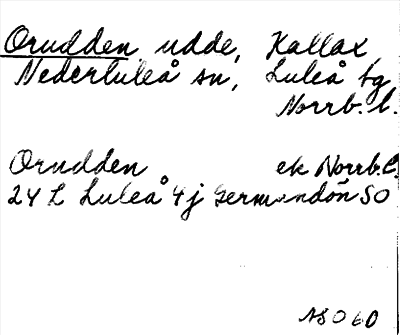 Orudden udde, Kallax
Nederluleå sn, Luleå tg
Norrb. l.
Orudden ek Norrb. l.
24 L Luleå 4 j Germandön SO
AS 0 60